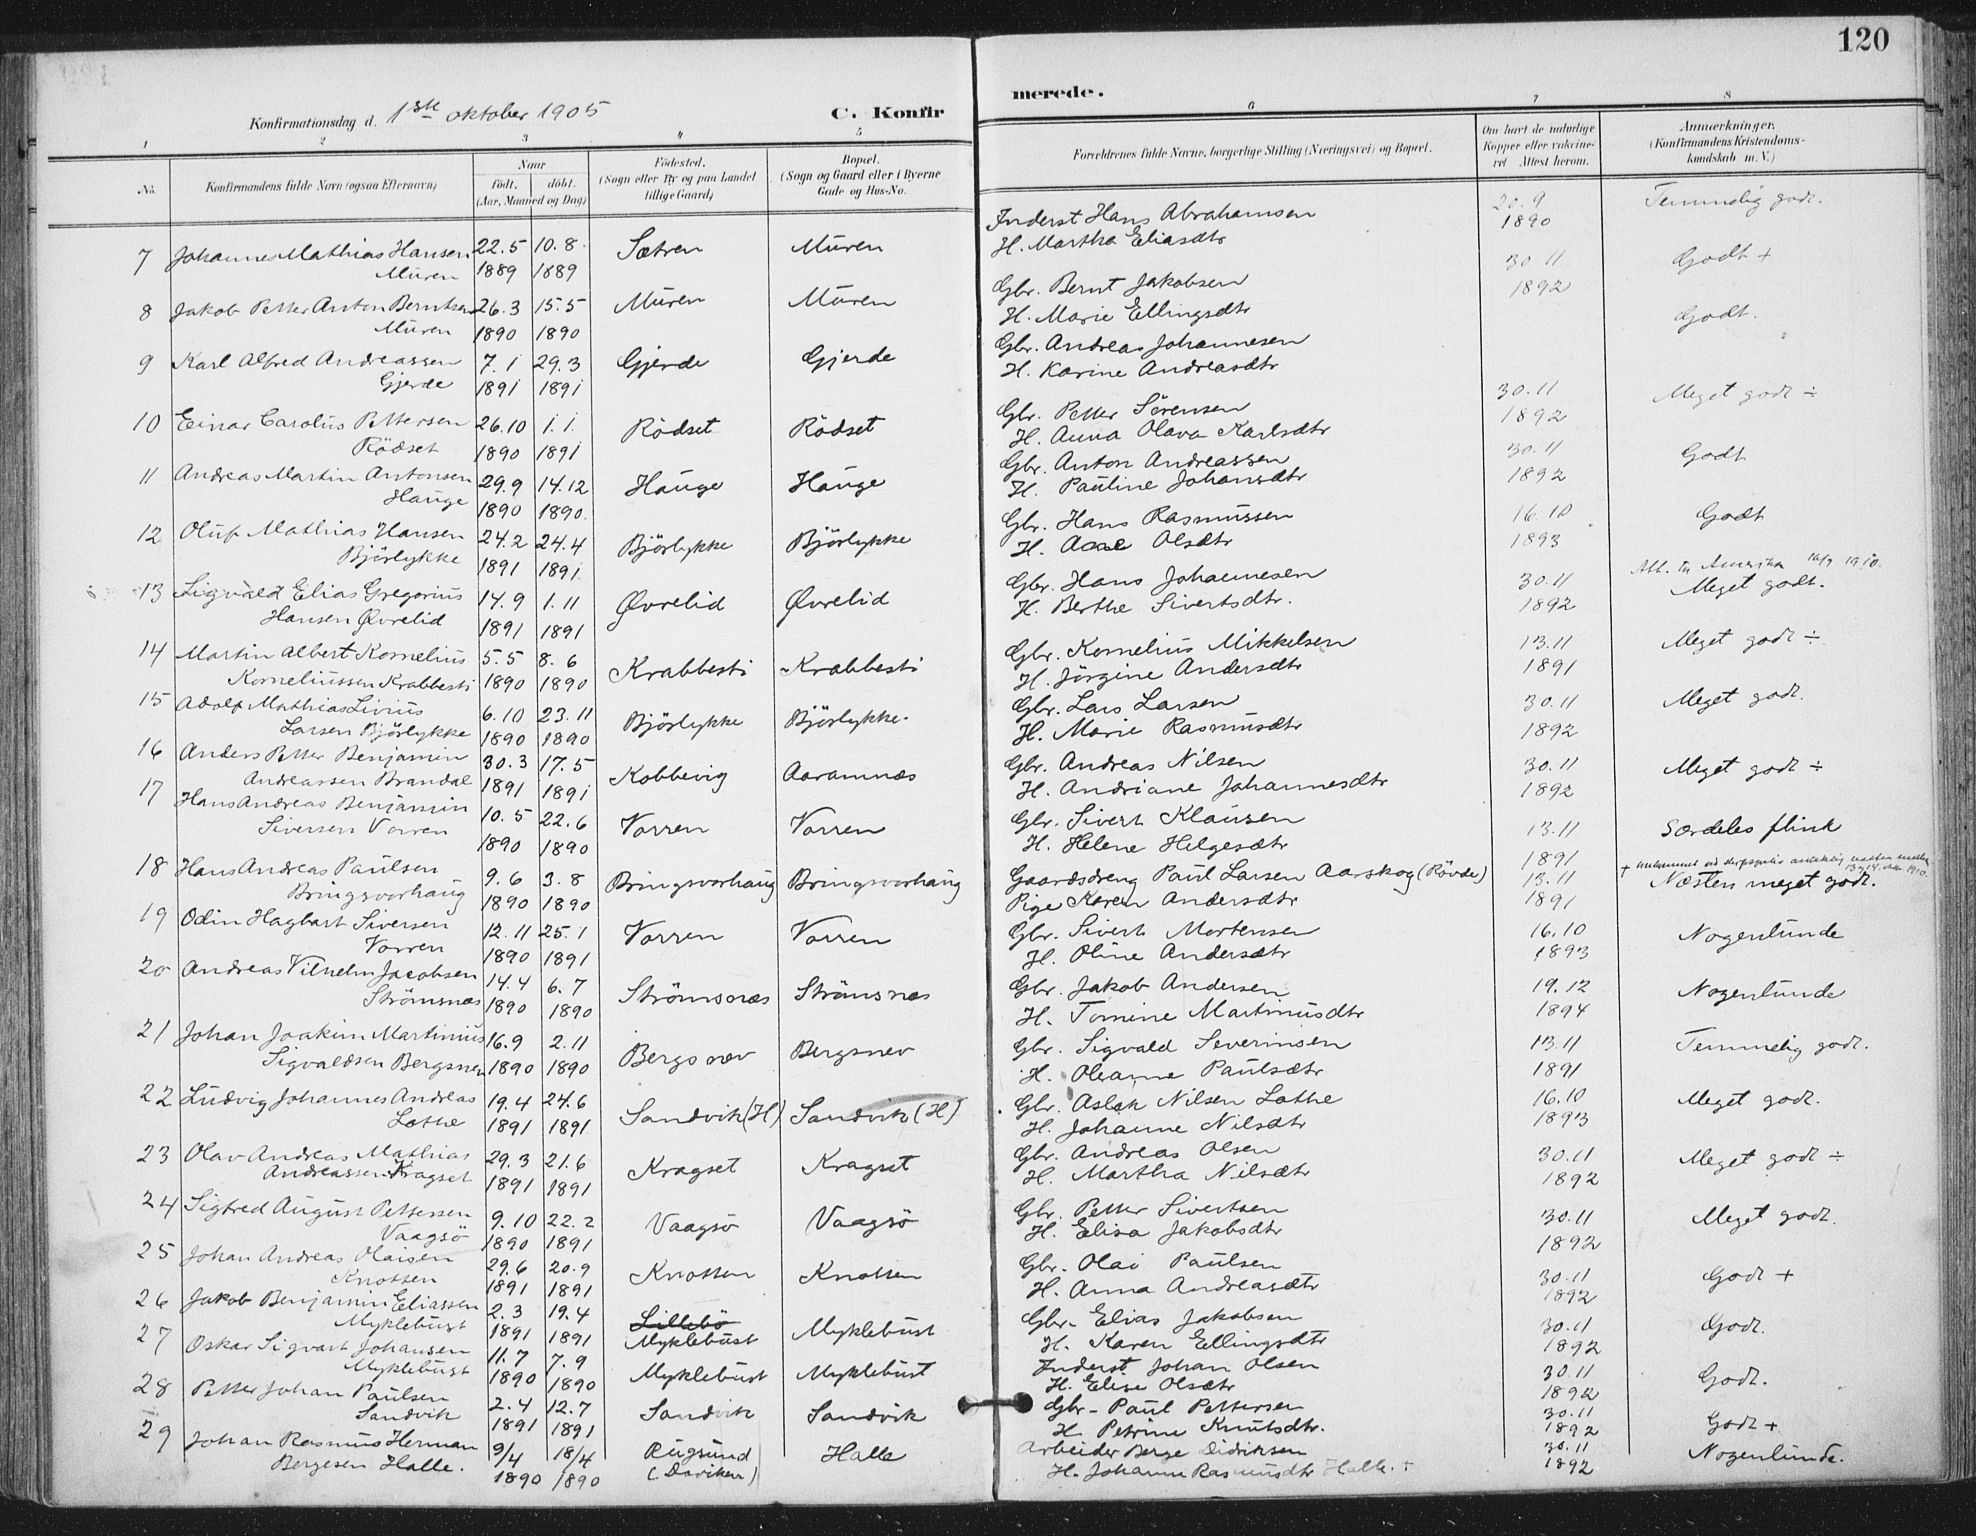 120
Konfirmationsdag d. 1ste oktober 1905
C. Konfirmerede.
1 2 3 4 5 6 7 8
No. Konfirmandens fulde Navn (ogsaa Efternavn) Naar født. døbt. (Aar, Maaned og Dag) Fødested. (Sogn eller By og paa Landet tillige Gaard) Bopæl. (Sogn og Gaard eller i Byerne Gade og Hus-No. Forældrenes fulde Navne, borgerlige Stilling (Næringsvei) og Bopæl. Om havt de naturlige Kopper eller vaccineret. Attest herom. Anmærkninger. (Konfirmandens Kristendomskundskab m. V.)
7 Johannes Mathias Hansen 22.5 10.8 Sætren Muren Inderst Hans Abrahamsen 20.9 Temmelig godt.
Muren 1889 1889 H. Martha Eliasdtr 1890
8 Jakob Petter Anton Berntsen 26.3 15.5 Muren Muren Gbr. Bernt Jakobsen 30 11 Godt +
Muren 1890 1890 H. Marie Ellingsdtr 1892
9 Karl Alfred Andreassen 7.1 29.3 Gjerde Gjerde Gbr. Andreas Johannesen Godt.
Gjerde 1891 1891 H. Karine Andreasdtr
10 Einar Carolus Pettersen 26.10 1.1. Rødset Rødset Gbr. Petter Sørensen 30.11 Meget godt ÷
Rødset 1890 1891 H. Anna Olava Karlsdtr 1892
11 Andreas Martin Antonsen 29.9 14.12 Hauge Hauge Gbr. Anton Andreassen 30.11 Godt
Hauge 1890 1890. H. Pauline Johansdtr 1892
12 Oluf Mathias Hansen 24.2 24.4 Bjørlykke Bjørlykke Gbr. Hans Rasmussen 16.10 Godt
Bjørlykke 1891 1891. H. Aase Olsdtr 1893
Att. til Amerika 16/9 1910.
13 Sigvald Elias Gregorius 14.9 1.11 Øvrelid Øvrelid Gbr. Hans Johannesen 30.11 Meget godt.
Hansen Øvrelid 1891 1891 H. Berthe Sivertsdtr. 1892
14 Martin Albert Kornelius 5.5 8.6 Krabbesti Krabbesti Gbr. Kornelius Mikkelsen 13.11 Meget godt ÷
Korneliussen Krabbesti 1890 1890 H. Jørgine Andersdtr 1891
15 Adolf Mathias Livius 6.10 23.11 Bjørlykke Bjørlykke. Gbr. Lars Larsen 30.11 Meget godt.
Larsen Bjørlykke 1890 1890 H. Marie Rasmusdtr 1892
16 Anders Petter Benjamin 30.3 17.5 Kobbevig Aaramnæs Gbr. Andreas Nilsen 30.11 Meget godt ÷
Andreassen Brandal 1891 1891 H. Andriane Johannesdtr 1892
17 Hans Andreas Benjamin 10.5 22.6 Vorren Vorren Gbr. Sivert Klausen 13.11 Særdeles flink
Siversen Vorren 1890 1890 H. Helene Helgesdtr 1891
18 Hans Andreas Paulsen 9.6 3.8 Bringsvorhaug Bringsvorhaug Gaardsdreng Paul Larsen Aarskog (Røvde) 13.11 Næsten meget godt.
Bringsvorhaug 1890 1890 Pige Karen Andersdtr 1891
19 Odin Hagbart Siversen 12.11 25.1 Vorren Vorren Gbr. Sivert Mortensen 16.10 Nogenlunde
Vorren 1890 1891 H. Oline Andersdtr 1893
20 Andreas Vilhelm Jacobsen 14.4 6.7 Strømsnæs Strømsnæs Gbr. Jakob Andersen 19.12 Nogenlunde
Strømsnæs 1890 1890 H. Tomine Martinusdtr 1894
21 Johan Joakim Martinius 16.9 2.11 Bergsnev Bergsnev Gbr. Sigvald Severinsen 13.11 Temmelig godt.
Sigvaldsen Bergsnev 1890 1890 H. Oleanne Paulsdtr 1891
22 Ludvig Johannes Andreas 19.4 24.6 Sandvik (H) Sandvik (H) Gbr. Aslak Nilsen Lothe 16.10 Meget godt.
Lothe 1891 1891 H. Johanne Nilsdtr 1893
23 Olav Andreas Mathias 29.3 21.6 Kragset Kragset Gbr. Andreas Olsen 30.11 Meget godt ÷
Andreassen Kragset 1891 1891 H. Martha Nilsdtr 1892
24 Sigfred August Pettersen 9.10 22.2 Vaagsø Vaagsø Gbr. Petter Sivertsen 30.11 Meget godt.
Vaagsø 1890 1891 H. Elisa Jakobsdtr 1892
25 Johan Andreas Olaisen 29.6 20.9 Knotten Knotten Gbr. Olai Paulsen 30.11 Godt +
Knotten 1891 1891 H. Anna Andreasdtr 1892
26 Jakob Benjamin Eliassen 2.3 19.4 Lillebø Myklebust Myklebust Gbr. Elias Jakobsen 30.11 Godt.
Myklebust 1891 1891 H. Karen Ellingsdtr 1892
27 Oskar Sigvart Johansen 11.7 7.9 Myklebust Myklebust Inderst Johan Olsen 30.11 Godt.
Myklebust 1890 1890 H. Elise Olsdtr 1892
28 Petter Johan Paulsen 2.4 12.7 Sandvik Sandvik Gbr. Paul Pettersen 30.11 Godt +
Sandvik 1891 1891 H. Petrine Knutsdtr. 1892
29 Johan Rasmus Herman 9/4 18/4 Rugsund Halle Arbeider Berge Didriksen 30.11 Nogenlunde.
Bergesen Halle. 1890 1890 (Daviken) H. Johanne Rasmusdtr Halle. + 1892